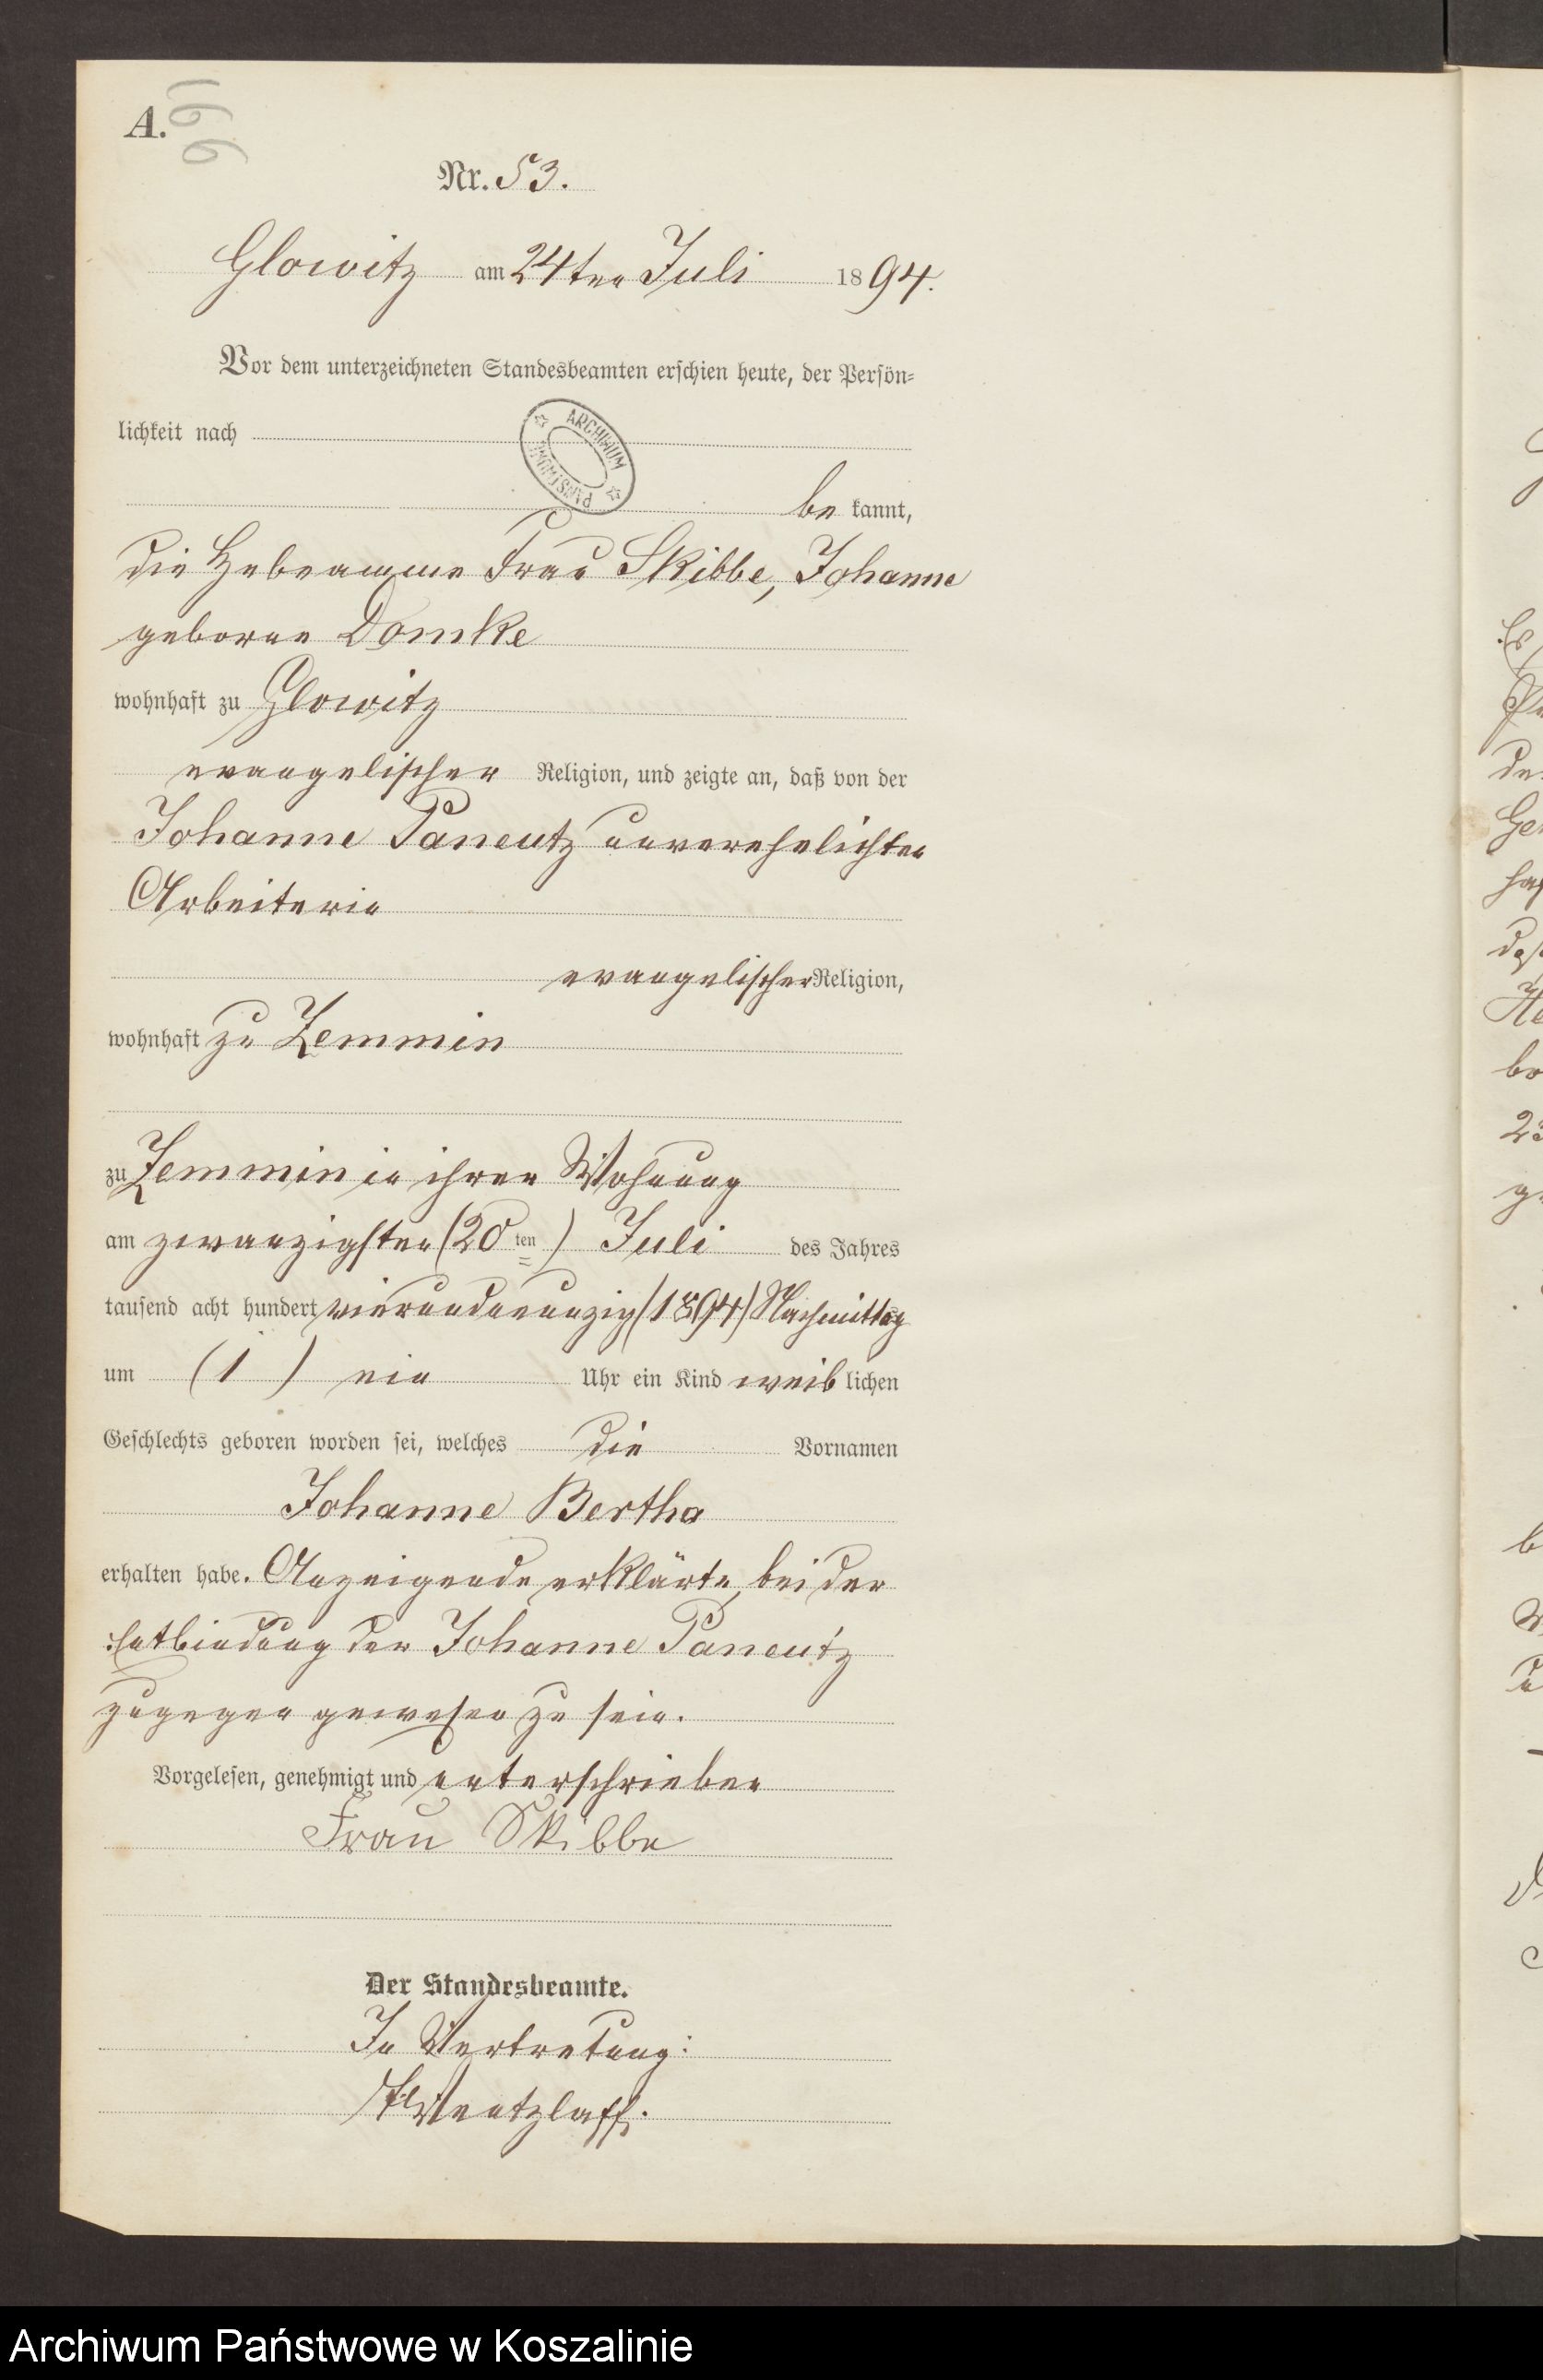 A.
166
Nr. 53.
Glowitz am 24ten Juli 1894.
Vor dem unterzeichneten Standesbeamten erschien heute, der Persön-
lichkeit nach
ARCHIWUM PAŃSTWOWE
be kannt,
die Hebeamme Frau Skibbe, Johanne
geborne Domke
wohnhaft zu Glowitz
evangelischer Religion, und zeigte an, daß von der
Johanne Paneutz unverehelichten
Arbeiterin
evangelischer Religion,
wohnhaft zu Zemmin
zu Zemmin in ihrer Wohnung
am zwanzigsten (20ten) Juli des Jahres
tausend acht hundert vierundneunzig (1894) Nachmittag
um (1) ein Uhr ein Kind weib lichen
Geschlechts geboren worden sei, welches die Vornamen
Johanne Bertha
erhalten habe. Anzeigende erklärte, bei der
Entbindung der Johanne Paneutz
zugegen gewesen zu sein.
Vorgelesen, genehmigt und unterschrieben
Frau Skibbe
Der Standesbeamte.
In Vertretung:
Wentzlaff.
Archiwum Państwowe w Koszalinie